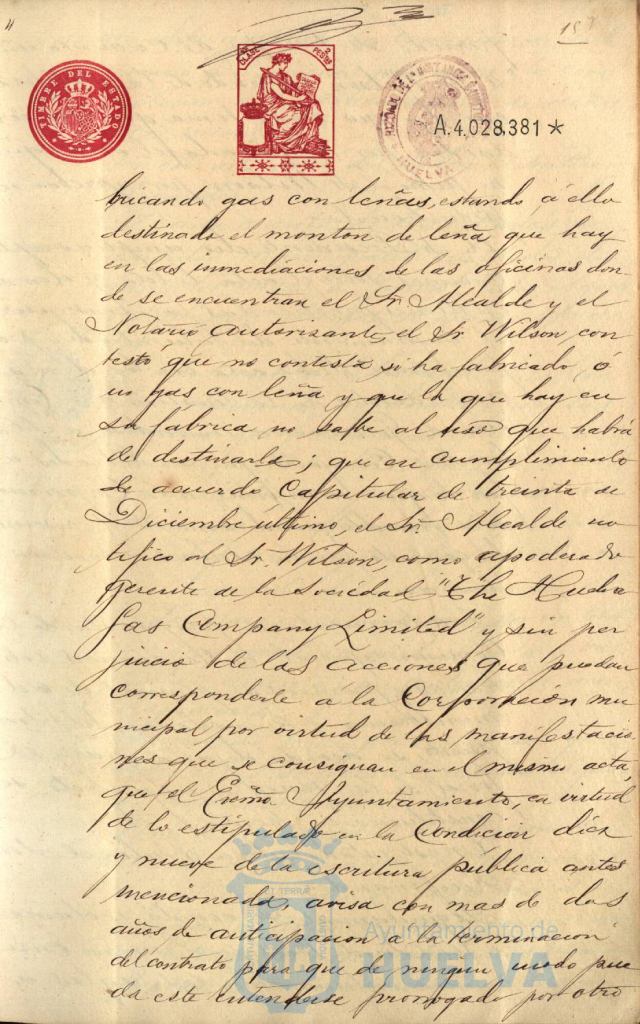 15
TIMBRE DEL ESTADO
CLASE
2 PESETAS
HUELVA
A.4,028,381 *
bricando gas con leñas, estando á ello
destinado el monton de leña que hay
en las inmediaciones de las oficinas don
de se encuentran el Sr. Alcalde y el
Notario autorizante, el Sr. Wilson con
testó que no contesta si ha fabricado ó
no gas con leña y que la que hay en
su fábrica no sabe al uso que habrá
de destinarla; que en cumplimiento
de acuerdo Capitular de treinta de
Diciembre último, el Sr. Alcalde no
tificó al Sr. Wilson, como apoderado
gerente de la Sociedad "The Huelva
Gas Company Limited" y sin per
juicio de las acciones que puedan
corresponderle á la Corporación mu
nicipal por virtud de las manifestacio
nes que se consignan en el mismo acta
que el Excmo. Ayuntamiento, en virtud
de lo estipulado en la Condición diez
y nueve de la escritura pública antes
mencionada, avisa con mas de dos
años de anticipacion a la terminacion
del contrato para que de ningun modo pue
da este entenderse prorrogado por otro
Ayuntamiento de
HUELVA